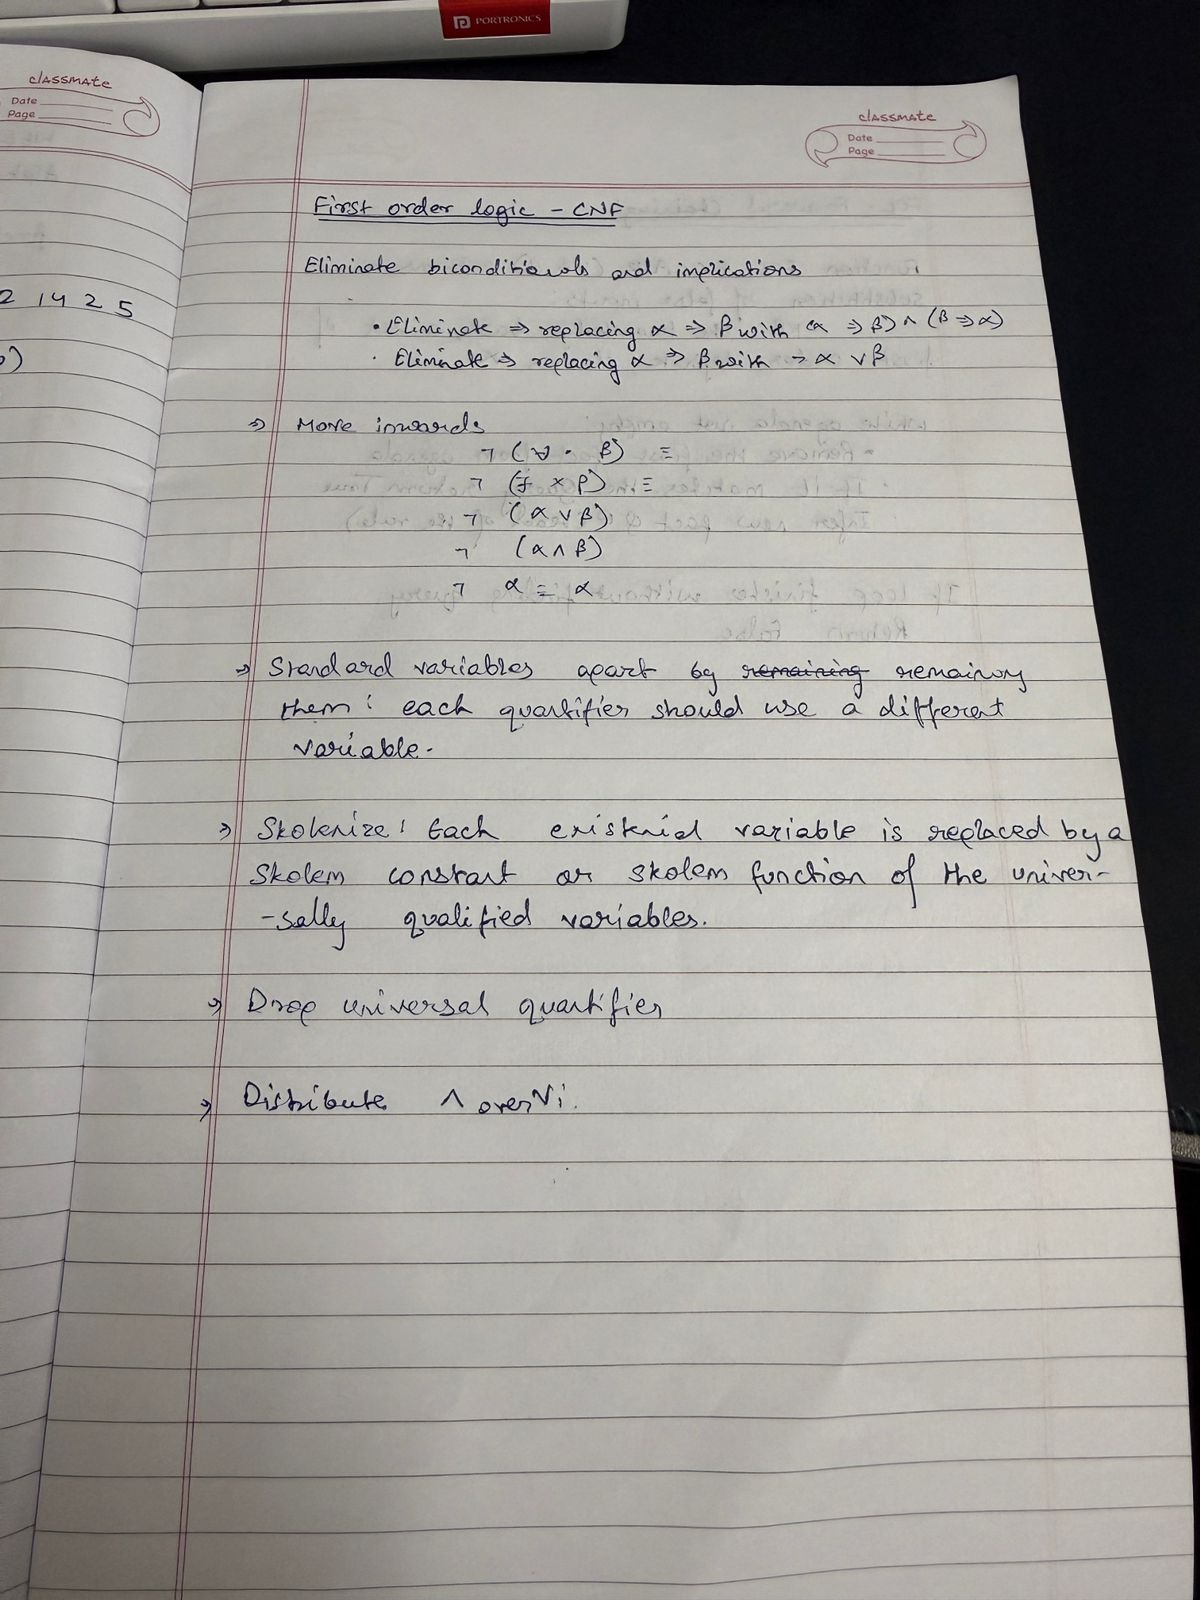 PORTRONICS
classmate
Date
Page
2 14 2 5
)
classmate
Date
Page
First order logic - CNF
Eliminate biconditionals and implications
• Eliminate ⇒ replacing α ⇒ β with (α ⇒ β) ^ (β ⇒ α)
• Eliminate ⇒ replacing α ⇒ β with ¬ α ∨ β
⇒ Move inwards
¬ (∀ • β) ≡
¬ ( x β) ≡
¬ (α ∨ β)
¬ (α ∧ β)
¬ α = α
⇒ Standard variables apart by remaining remaining
them : each quantifier should use a different
variable.
⇒ Skolemize : Each existential variable is replaced by a
Skolem constant or skolem function of the univer-
-sally qualified variables.
⇒ Drop universal quantifier
⇒ Distribute ∧ over ∨i.